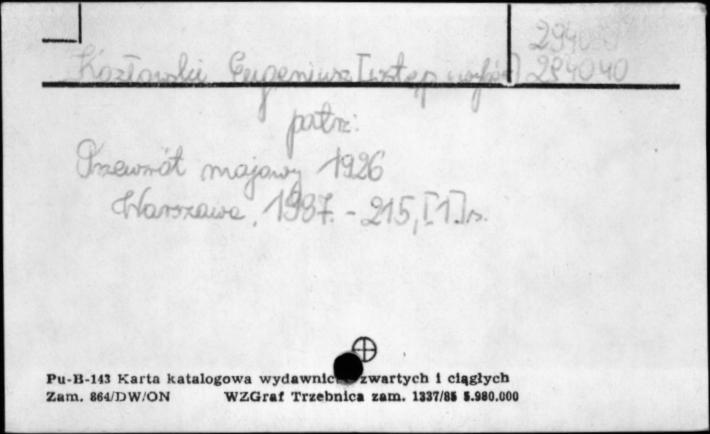 294040
Kozłowski Eugeniusz [wstęp wybór] 294040
patrz:
Przewrót majowy 1926
Warszawa, 1987. - 215, [1] s.
Pu-B-143 Karta katalogowa wydawnic zwartych i ciągłych
Zam. 864/DW/ON WZGraf Trzebnica zam. 1337/85 5.980.000